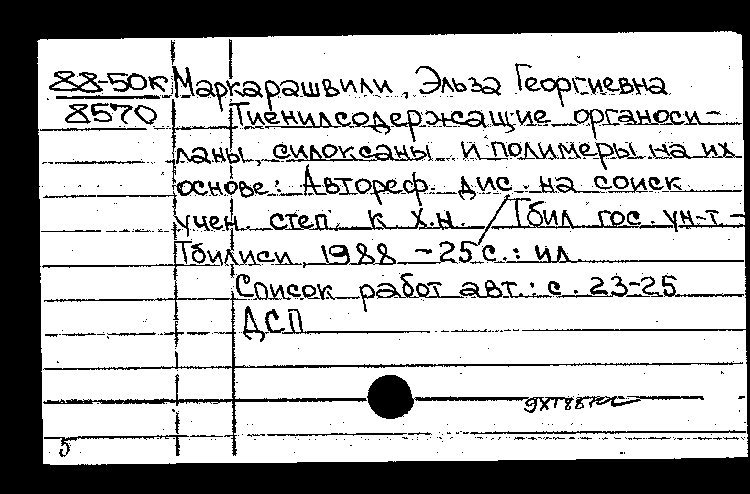 88-50к Маркарашвили, Эльза Георгиевна
8570 Тиенилсодержащие органоси-
ланы, силоксаны и полимеры на их
основе: Автореф. дис. на соиск.
учен. степ. к. х.н. / Тбил гос. ун-т. -
Тбилиси, 1988 -25с.: ил.
Список работ авт.: с. 23-25
ДСП
5